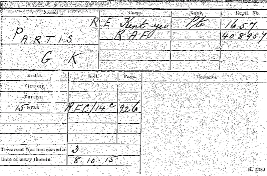 Name. Corps. Rank. Regtl. No.
R. E. Kent Pte 1657
PARTIS R A F 408457
G K
Medal. Roll. Page.
Victory
British
15 Star R.F.C/14 B 926
Remarks.
Theatre of War first served in 3
Date of entry therein 8-10-15